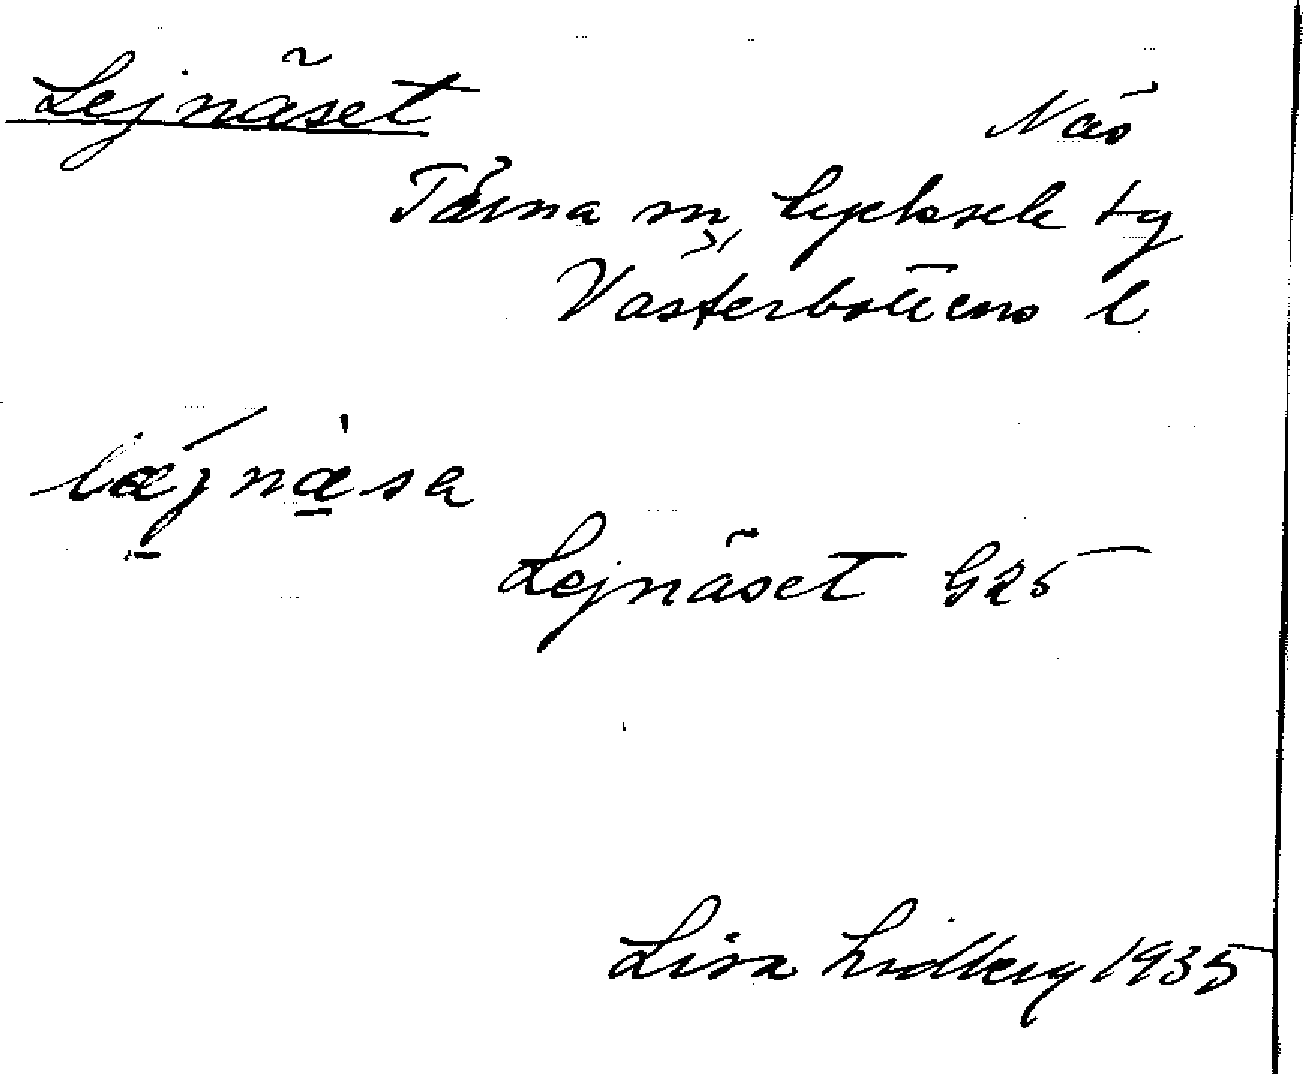 Lejnäset
Näs
Tärna sn, Lycksele tg
Västerbottens l
læjnæsa
Lejnäset G25
Lisa Lidberg 1935